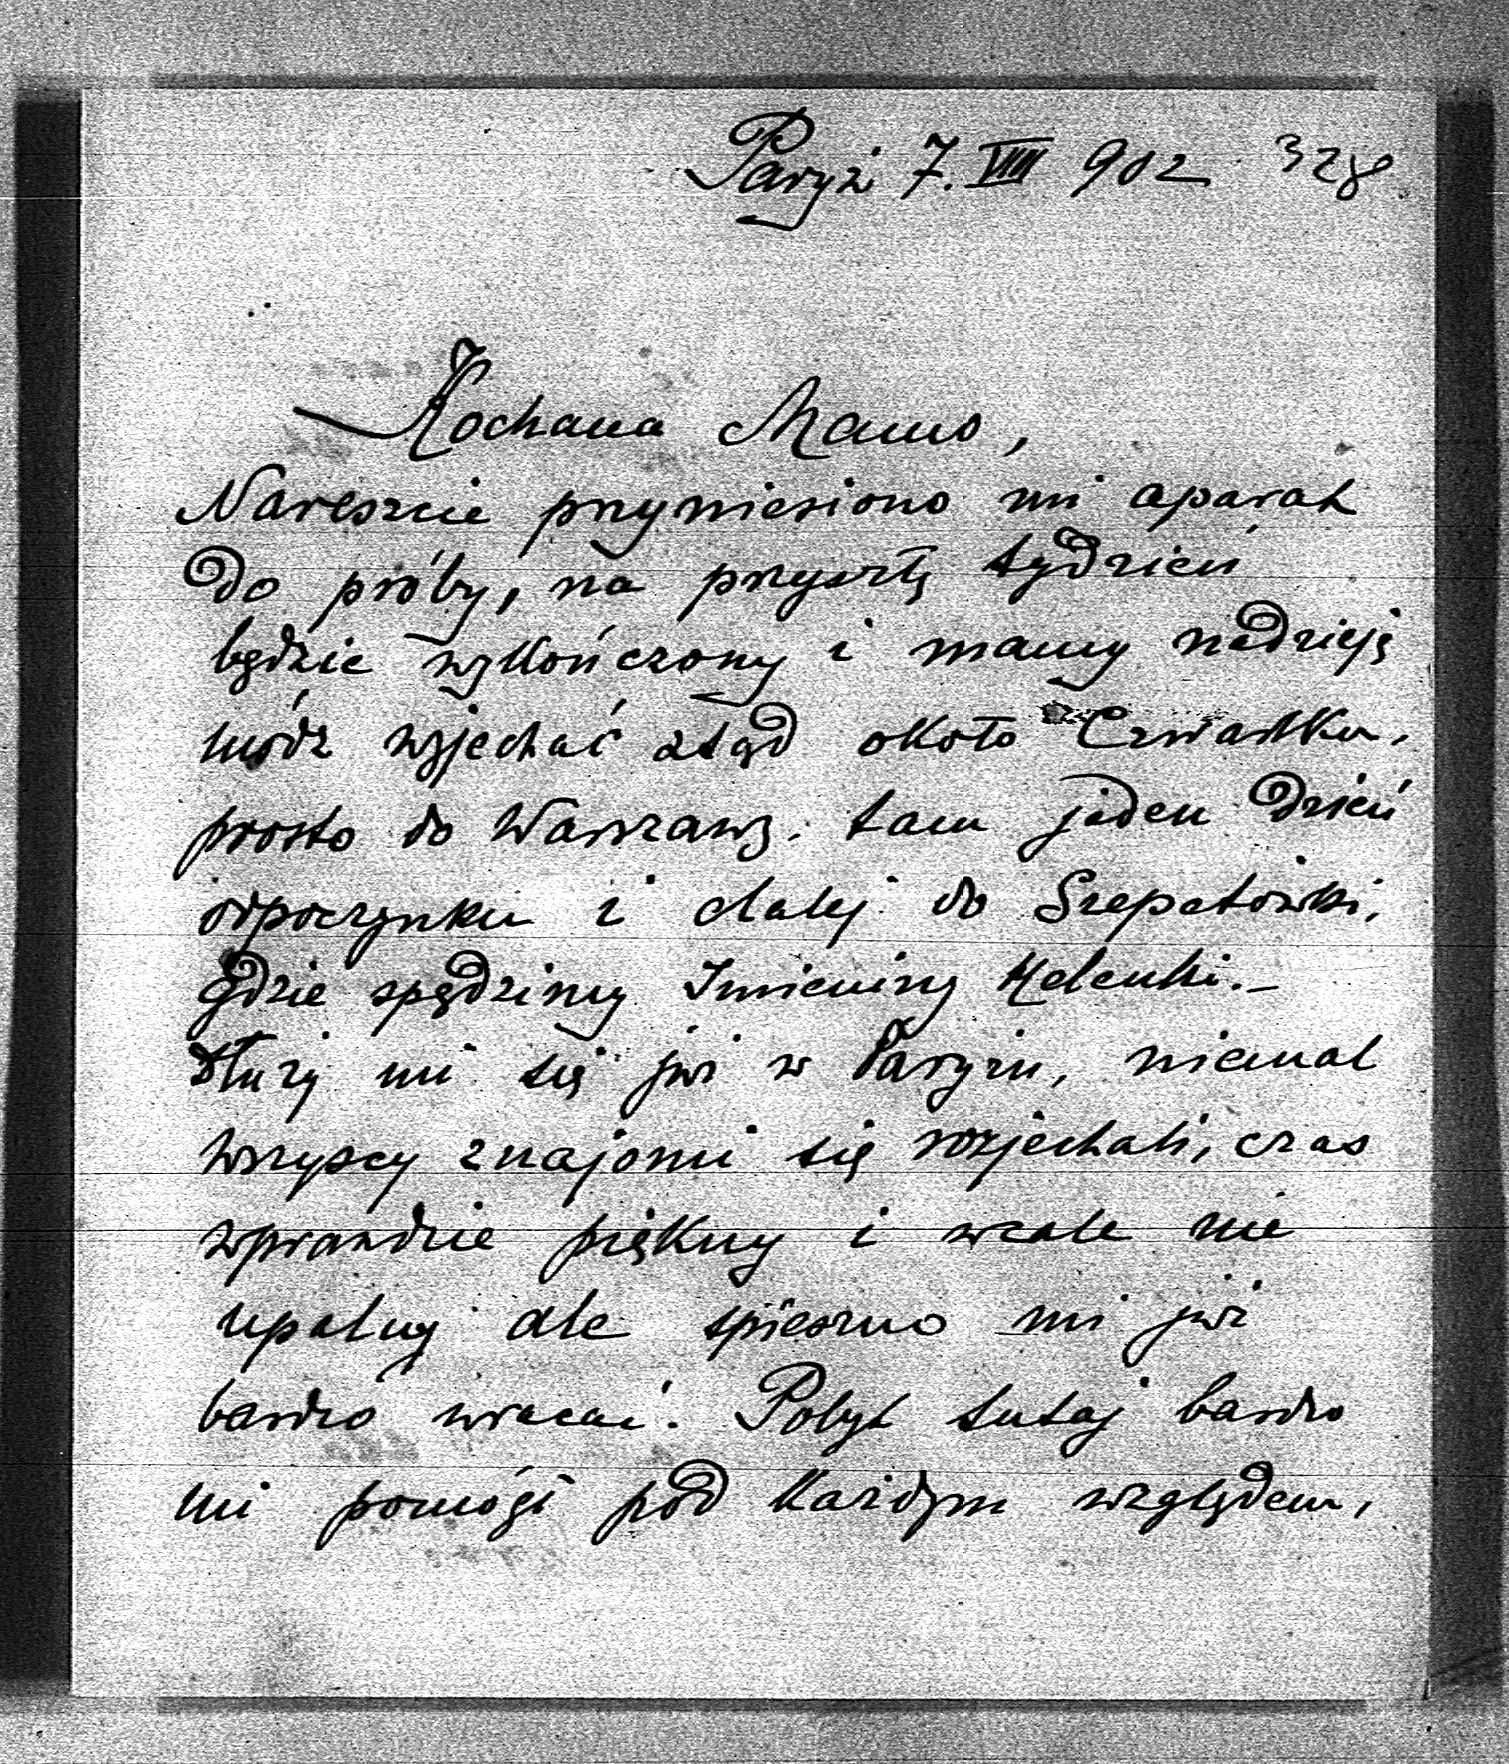 Paryż 7. VIII 902 328
Kochana Mamo,
Nareszcie przyniesiono mi aparat
do próby, na przyszły tydzień
będzie wykończony i mamy nadzieję
módz wyjechać ztąd około Czwartku,
prosto do Warszawy. tam jeden dzień
odpoczynku i dalej do Szepetówki,
gdzie spędzimy Imieniny Helenki. –
Dłuży mi się już w Paryżu, niemal
wszyscy znajomi się rozjechali, czas
wprawdzie piękny i wcale nie
upalny ale spieszno mi już
bardzo wracać. Pobyt tutaj bardzo
mi pomógł pod każdym względem,